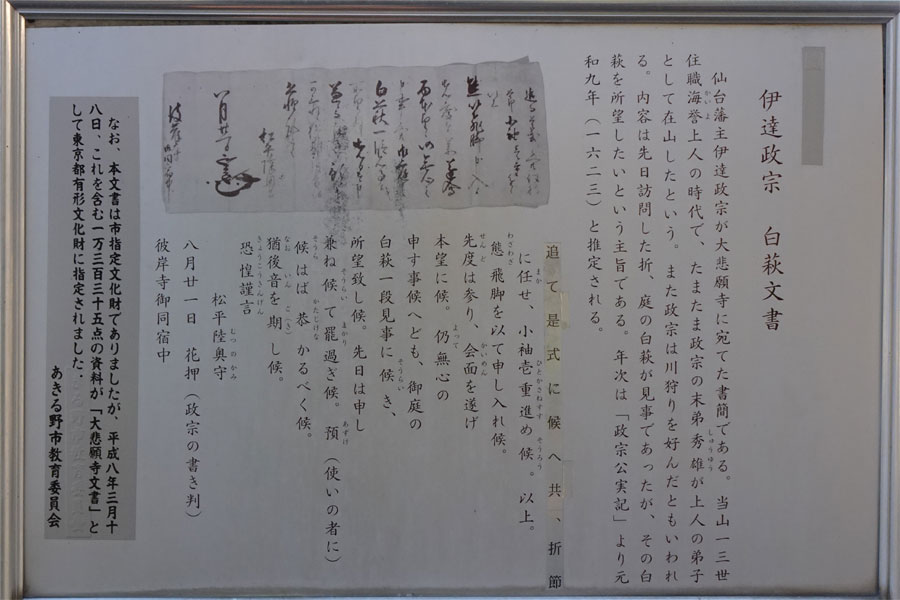 伊達政宗 白萩文書
仙台藩主伊達政宗が大悲願寺に宛てた書簡である。当山一三世
住職海誉上人の時代で、たまたま政宗の末弟秀雄が上人の弟子
として在山したという。また政宗は川狩りを好んだともいわれ
る。内容は先日訪問した折、庭の白萩が見事であったが、その白
萩を所望したいという主旨である。年次は「政宗公実記」より元
和九年(一六二三)と推定される。
追て是式に候へ共、折節
に任せ、小袖壱重進め候。以上。
態飛脚を以て申し入れ候。
先度は参り、会面を遂げ
本望に候。仍無心の
申す事候へども、御庭の
白萩一段見事に候き、
所望致し候。先日は申し
兼ね候て罷過ぎ候。預(使いの者に)
候はば恭かるべく候。
猶後音を期し候。
恐惶謹言
松平陸奥守
八月廿一日 花押(政宗の書き判)
彼岸寺御同宿中
なお、本文書は市指定文化財でありましたが、平成八年三月十
八日、これを含む一万三百三十五点の資料が「大悲願寺文書」と
して東京都有形文化財に指定されました。
あきる野市教育委員会